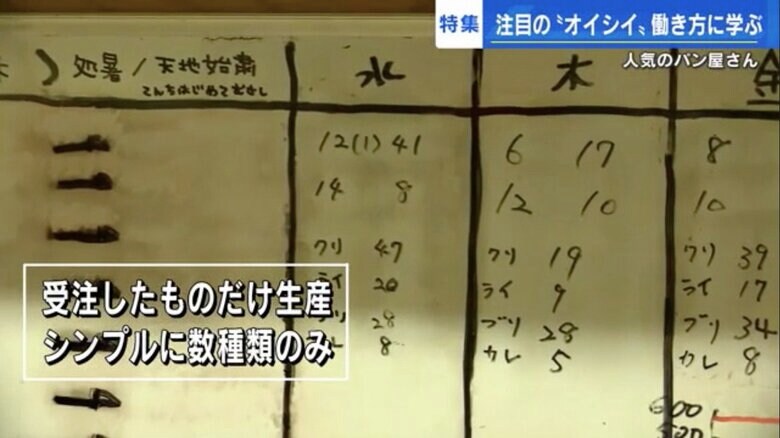 特集
注目の〝オイシイ〟働き方に学ぶ
人気のパン屋さん
処暑/天地始粛
てんちはじめてさむし
水
木
金
12(1) 41
6 17
8
14 8
12 10
10
クリ 47
クリ 19
クリ 39
ライ 20
ライ 9
ライ 17
28
ブリ 28
ブリ 34
8
カレ 5
カレ 8
600
受注したものだけ生産
シンプルに数種類のみ